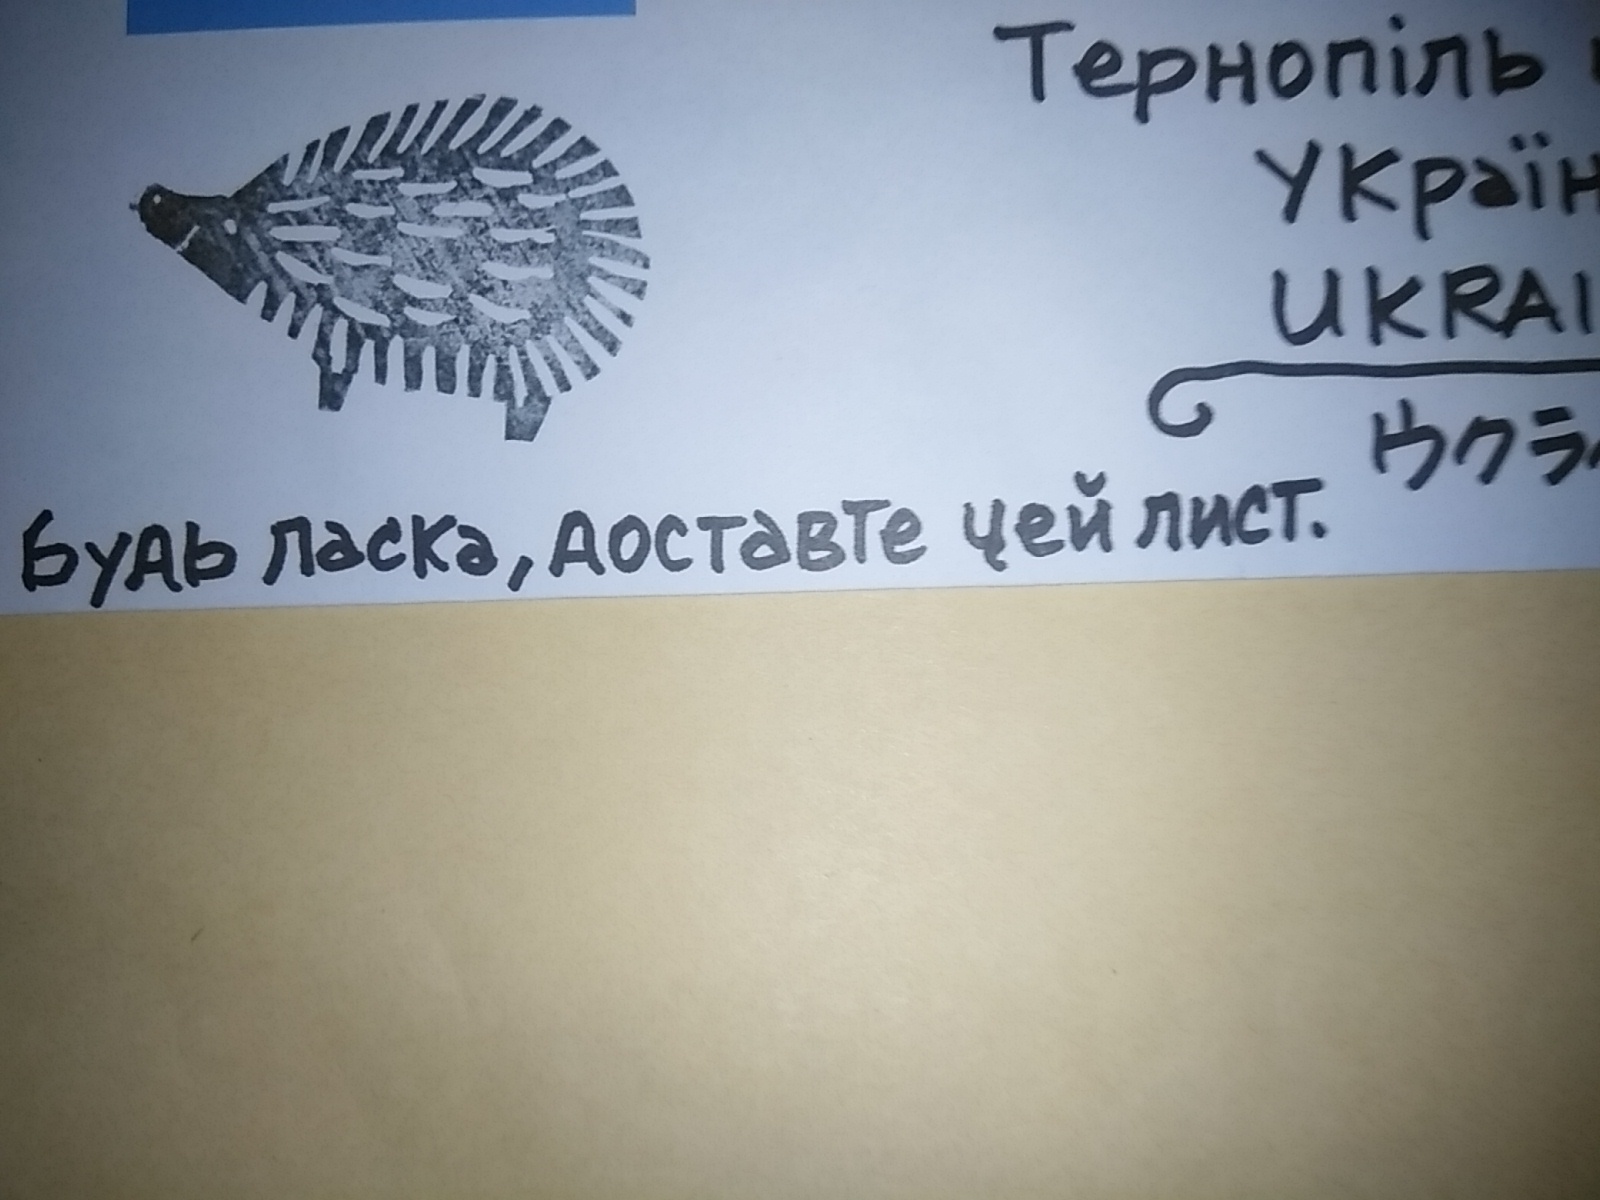 Тернопіль
Україн
UKRAI
ウクライ
Будь ласка, доставте цей лист.